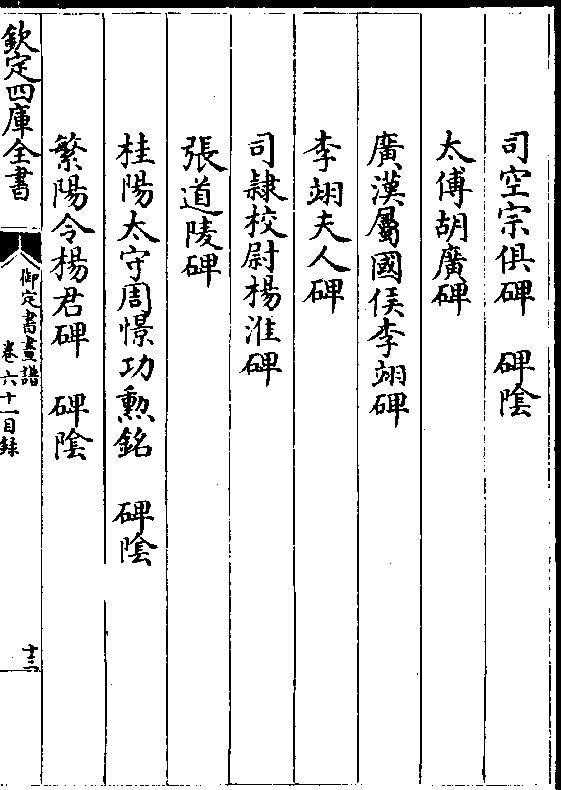 司空宗俱碑　碑陰
太傅胡廣碑
廣漢屬國侯李翊碑
李翊夫人碑
司隸校尉楊淮碑
張道陵碑
桂陽太守周憬功勲銘　碑陰
繁陽令楊君碑　碑陰
欽定四庫全書
御定書畫譜
卷六十一目録
十三